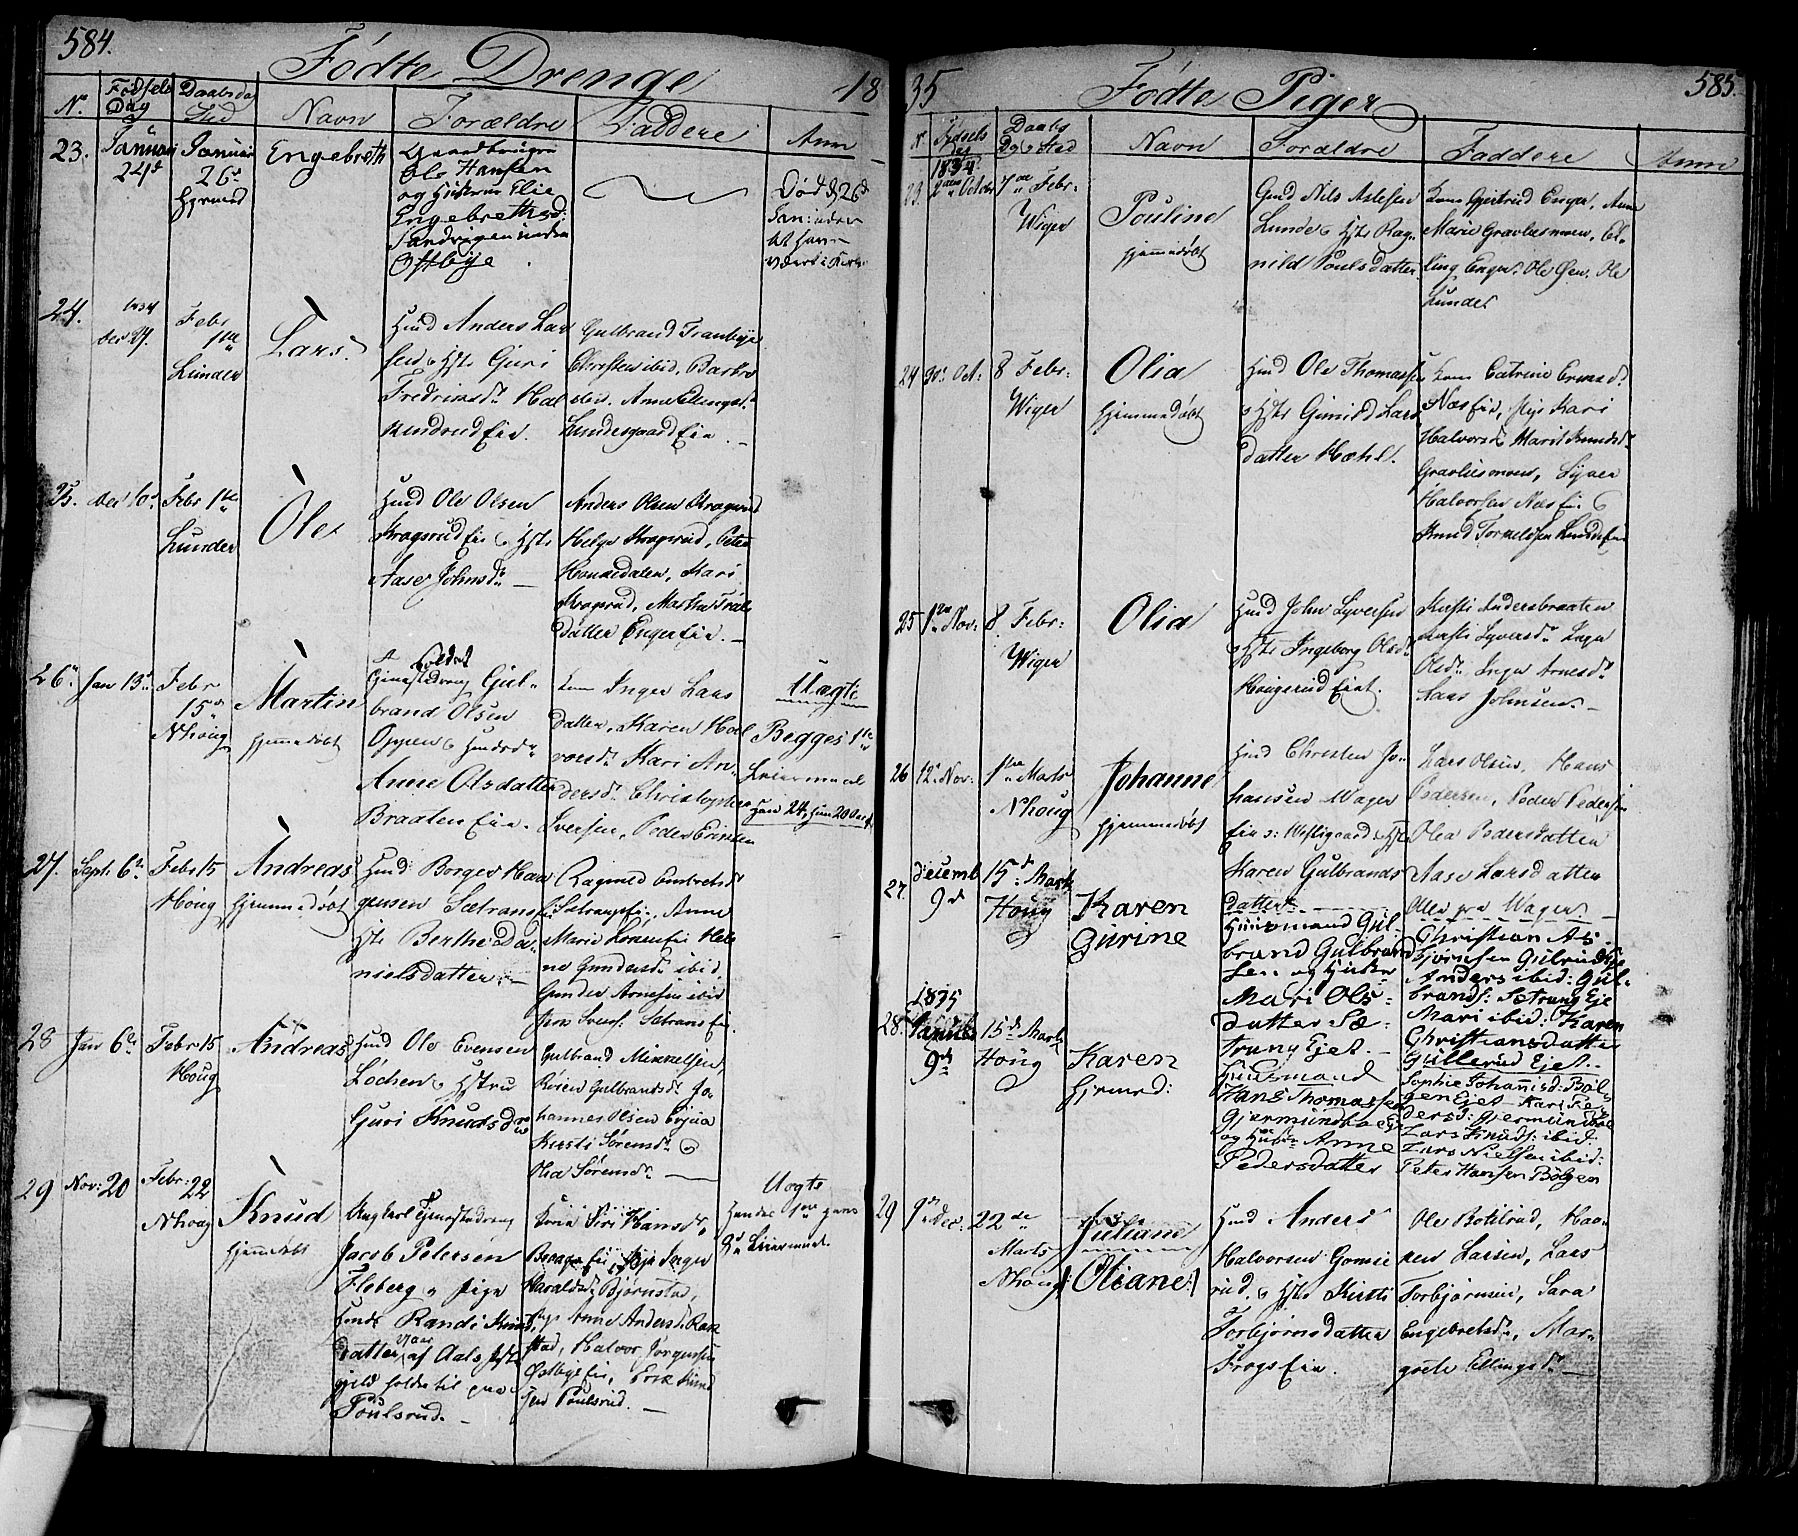 584.
Födte Drenge
18
No. Fødsels Dag Daabsdag Sted Navn Forældre Faddere Anm
23. Januari 24d
Januari 26d
Hjemd
Engebreth
Gaardbruger
Ole Hansen
og Hustrue Elie
Engebrethsd:
Sandvigen under
Østbye
Død d 26d
Jan: uden
at have
været i Kirke
24. 1834
Dec 29.
Febr
1te
Lunder
Lars.
Huusd Anders Lar
sen & Hste Guri
Fredriksdr Hal
kindrud Eie.
Gulbrand Tranbye
Christen ibid.
Anne Ellingsdr
Lundesgaard Eie.
25. Dec 10de
Febr 1te
Lunder
Ole
Huusd Ole Olsen
Kragsrud Eie & Hste
Aase Johnsdr
Anders Olsen Kragsrud
Helge Kragsrud, Peter
Hovsedalen, Kari
Kragsrud, Martha
Datter Enger Eie.
26. Jan 13d
Febr
15de
NHoug
Martin
hjemmedøbt
Soldat
Tjenestedreng Gul-
brand Olsen
Oppen & Huusdr
Anne Olsdatter
Braaten Eie.
Kone Inger Lars
datter, Karen Hal
vorsdr Kari An-
dersdr Christopher
Iversen, Peder Eriksen
Uægte
Begges 1te
Leiermaal
Han 24, hun 20 Aar
27. Sept: 6te
Febr 15
Houg
Andreas
hjemmedøbt
Huusd: Borger Haa
gensen Sætrang Eie
Hste Berthe Da-
nielsdatter
Ragnild Embretsdr
Sætrang Eie, Anne
Marie Loren Eie Hele
ne Gundersdr ibid.
Gunder Arnesen ibid
Jens Svens: Sætrang Eie.
28 Jan 6te
Febr 15
Houg
Andreas
Huusd Ole Evensen
Lochen & Hstru
Guri Knudsdr
Gulbrand Mikkelsen
Karen Gulbrandsdr Jo-
hannes Olsen
Kirsti Sørensdr &
Olia Sørensdr
29 Nov: 20
Febr: 22
NHoug
Knud
hjemmedøbt
Ung Karl Tjenestedreng
Jacob Petersen
Fleberg & Pige
Randi Knud
datter af Aals Præste
gjeld holder til paa
Poulsrud.
Kone Siri Hansdr,
Pige Inger
Haraldsdr Bjørnstad,
Pige Anne Andersdr
stad, Halvor Jørgensen
Østbye Eie, Erik Knud
sen Poulsrud.
Uægte
Hendes 1te hans
2de Leiermaal.
35
Födte Piger
585.
No Fødsels Dag Daabs Dag & Sted Navn Forældre Faddere Anm
1834
23. 2den October
7de Febr:
Wiger
Pouline
hjemmedøbt
Huusd Nils Axlesen
Lunde & Hste Rag-
nild Poulsdatter
Kone Gjertrud Enger, Anne
Marie Gravliesmoen, El-
ling Enger, Ole Ole
Lunder
24 30: Oct:
8 Febr:
Wiger
Olia
hjemmedøbt
Huusd Ole Thomassen
& Hste Gunild Lars
datter Hæhl.
Kone Catrine
Næs Eie, Pige Kari
Halvorsdr Marit Knudsdr
Gravliesmoen, Syver
Halvorsen Næs Eie &
Knud Torkelssen Lunde Eie
25 1te Nov:
8 Febr:
Wiger
Olia
Huusd John Syversen
& Hste Ingeborg Olsdr
Hougerud Eiet.
Kirsti Andersbraaten
Kirsti Syversdr Inger
Olsdr Inger Arnesdr
Lars Johnsen.
26 12te Nov:
1te Marts
NHoug
Johanne
hjemmedøbt
Huusd Christen Jo-
hansen Wager
Eie s: Westigaard & Hste
Karen Gulbrands
datter
Lars Olsen, Hans
Pedersen, Peder Pedersen
Olea Pedersdatter
Aase Larsdatter
Olea fra Wager
27. Decemb
9d
15de Marts
Houg
Karen
Gurine
Huusmand Gul-
brand Gulbrand
sen og Hustru
Mari Ols-
datter Sæ-
trang Ejet.
Christian As-
bjørnsen Gulrud Eje
Anders ibid: Gul-
brands: Sætrang Eje
Mari ibid: Karen
Christiansdatter
Gullerud Ejet.
1835
28. Januar
9de
15de Marts
Houg
Karen
hjemd:
Huusmand
Hans Thomassen
Gjermundboeje
og Hustru Anne
Pedersdatter
Sophie Johannisd: Bøl-
gen Ejet - Kari Pe-
dersd: Gjermundboe
Lars Knuds: ibid:
Lars Nielsen ibid:
Peter Hansen Bølgen
29 9de Dec:
22de
Marts
NHoug
Juliane
(Oliane:)
Huusd Anders
Halvorsen Gomse
rud, & Hste Kirsti
Torbjørnsdatter
Frogs Eie.
Ole Botilrud, Haa-
ken Larsen, Lars
Torbjørnsen, Sara
Engebretsdr, Mar-
grete Ellingsdr